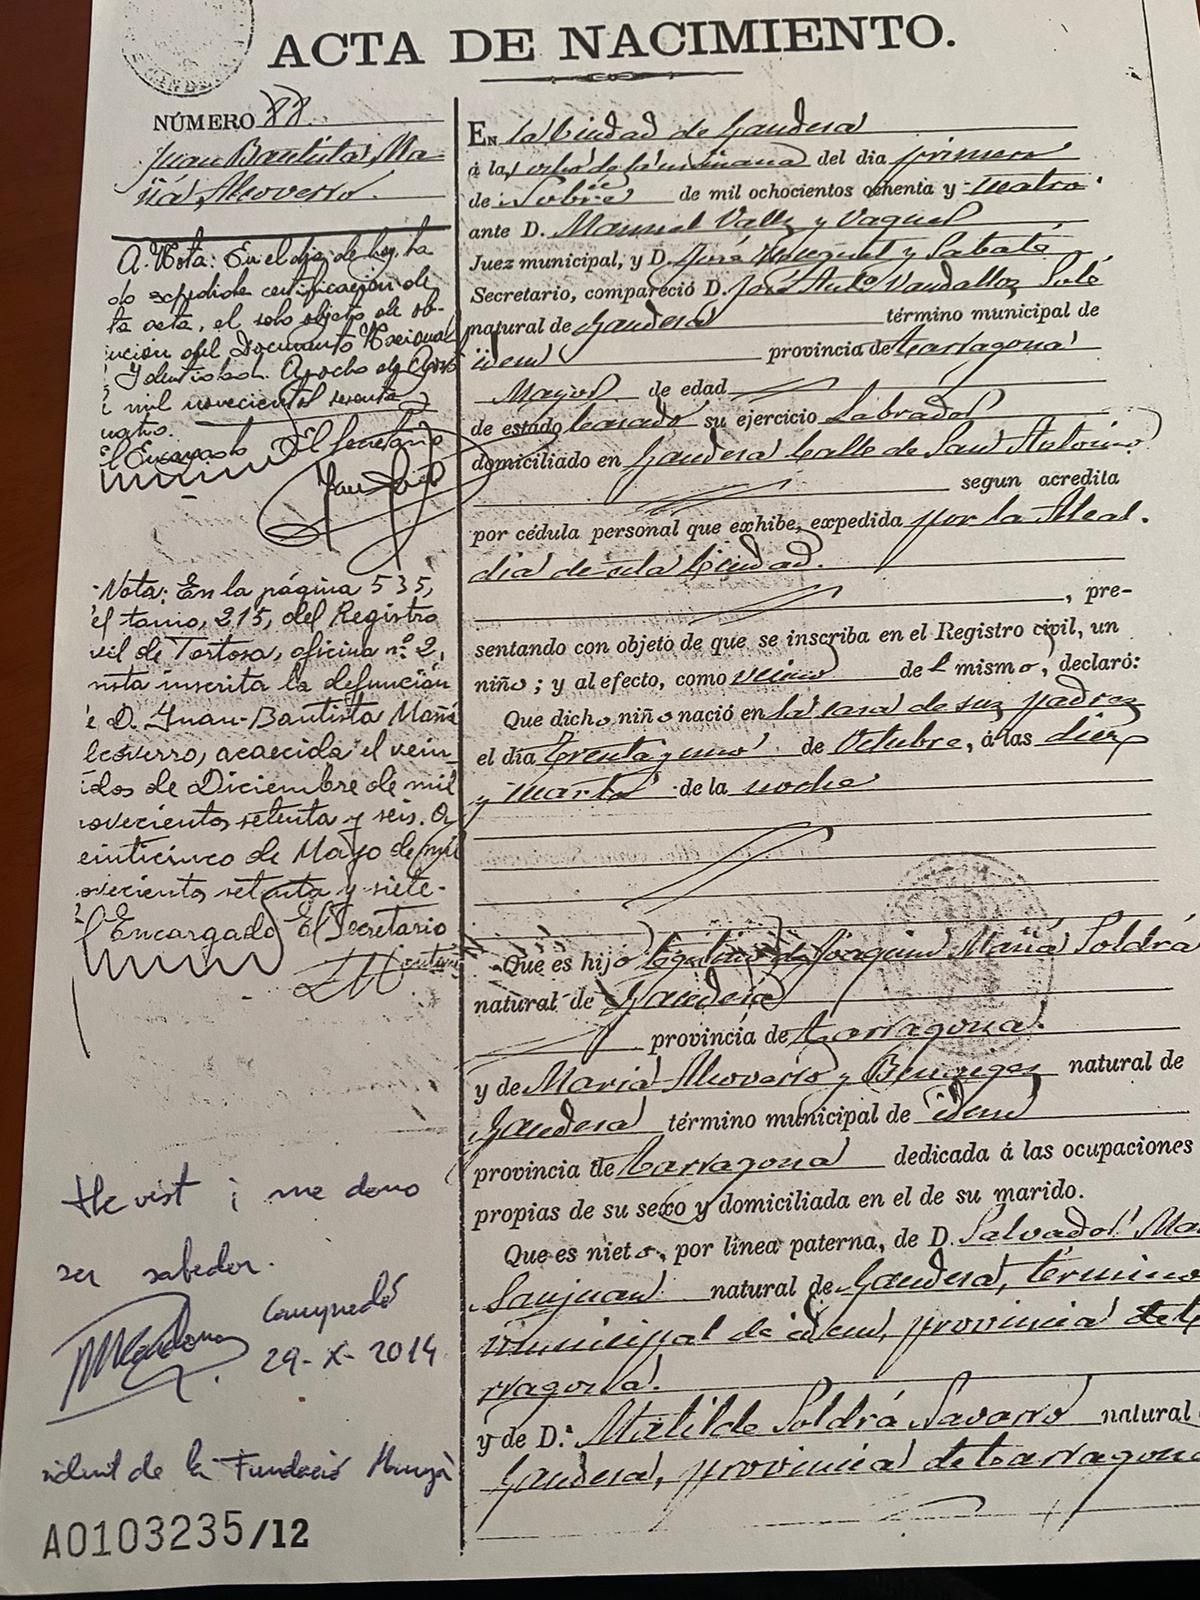 ACTA DE NACIMIENTO.
NÚMERO 88.
Juan Bautista Ma-
ñá Alcoverro.
A. Nota: En el dia de hoy, ha
do expedida certificación de
ta acta, el solo objeto de ob-
ución del Documento Nacional
Identidad. A ocho de Agos
mil novecientos sesenta
uatro.
El Encargado El Secretario
Nota: En la página 535,
el tomo, 215, del Registro
vil de Tortosa, oficina nº 2,
insta inscrita la defunción
e D. Juan-Bautista Mañá
lcoverro, acaecida el vein
idos de Diciembre de mil
ovecientos setenta y seis. A
einticinco de Mayo de mil
ovecientos setenta y siete-
El Encargado El Secretario
He vist i me dono
per sabedor.
29-X-2014
sident de la Fundació
A0103235/12
EN la Ciudad de Gandesa
á las ocho de la mañana del dia primero
de de mil ochocientos ochenta y cuatro
ante D. Manuel Vallz y Vaquel
Juez municipal, y D. José y Sabaté
Secretario, compareció D. José Antº Vandalloz Solé
natural de Gandesa término municipal de
idem provincia de Tarragona
Mayor de edad
de estado Casado su ejercicio Labrador
domiciliado en Gandesa Calle de San Antonio
segun acredita
por cédula personal que exhibe, expedida por la Alcal.
dia de esta Ciudad.
, pre-
sentando con objeto de que se inscriba en el Registro civil, un
niño; y al efecto, como vecino del mismo, declaró:
Que dicho niño nació en la casa de sus padres
el día trenta y uno de Octubre, á las diez
y cuarto de la noche
Que es hijo legitimo de Joaquin Mañá Soldrá
natural de Gandesa
provincia de Tarragona.
y de Maria Alcoverro y natural de
Gandesa término municipal de idem
provincia de Tarragona dedicada á las ocupaciones
propias de su sexo y domiciliada en el de su marido.
Que es nieto, por línea paterna, de D. Salvador Ma
Sanjuan natural de Gandesa, término
municipal de idem, provincia de
rragona.
y de D.ª Matilde Soldrá Navarro natural
Gandesa, provincia de Tarragona